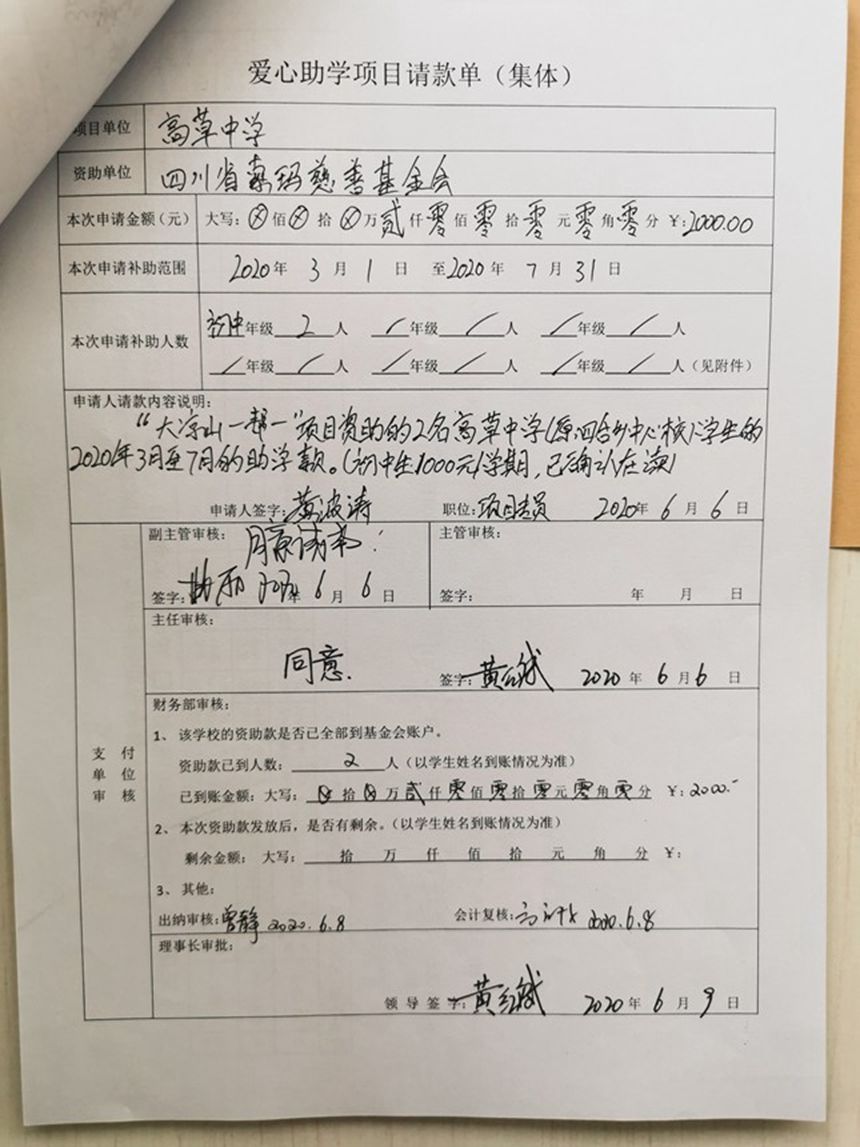 爱心助学项目请款单（集体）
项目单位 高草中学
资助单位 四川省索玛慈善基金会
本次申请金额（元） 大写：ⓧ佰ⓧ拾ⓧ万贰仟零佰零拾零元零角零分 ￥:2000.00
本次申请补助范围 2020年 3月 1日 至2020年 7月 31日
本次申请补助人数 初中年级 2 人 /年级 / 人 /年级 / 人
/年级 / 人 /年级 / 人 /年级 / 人（见附件）
申请人请款内容说明：
“大凉山一帮一”项目资助的2名高草中学(原四合乡中心校)学生的
2020年3月至7月的助学款。(初中生1000元/学期，已确认在读)
申请人签字：黄波涛 职位：项目专员 2020年 6月 6日
支付单位审核
副主管审核： 同意请款. 主管审核：
签字： 年 6月 6日 签字： 年 月 日
主任审核：
同意.
签字：黄红斌 2020年 6月 6日
财务部审核：
1、 该学校的资助款是否已全部到基金会账户。
资助款已到人数： 2 人（以学生姓名到账情况为准）
已到账金额：大写： ⓧ拾ⓧ万贰仟零佰零拾零元零角零分 ￥:2000.-
2、本次资助款发放后，是否有剩余。（以学生姓名到账情况为准）
剩余金额： 大写： 拾 万 仟 佰 拾 元 角 分 ￥:
3、 其他：
出纳审核：曾静 2020.6.8 会计复核： 2020.6.8
理事长审批：
领导签字：黄红斌 2020年 6月 9日